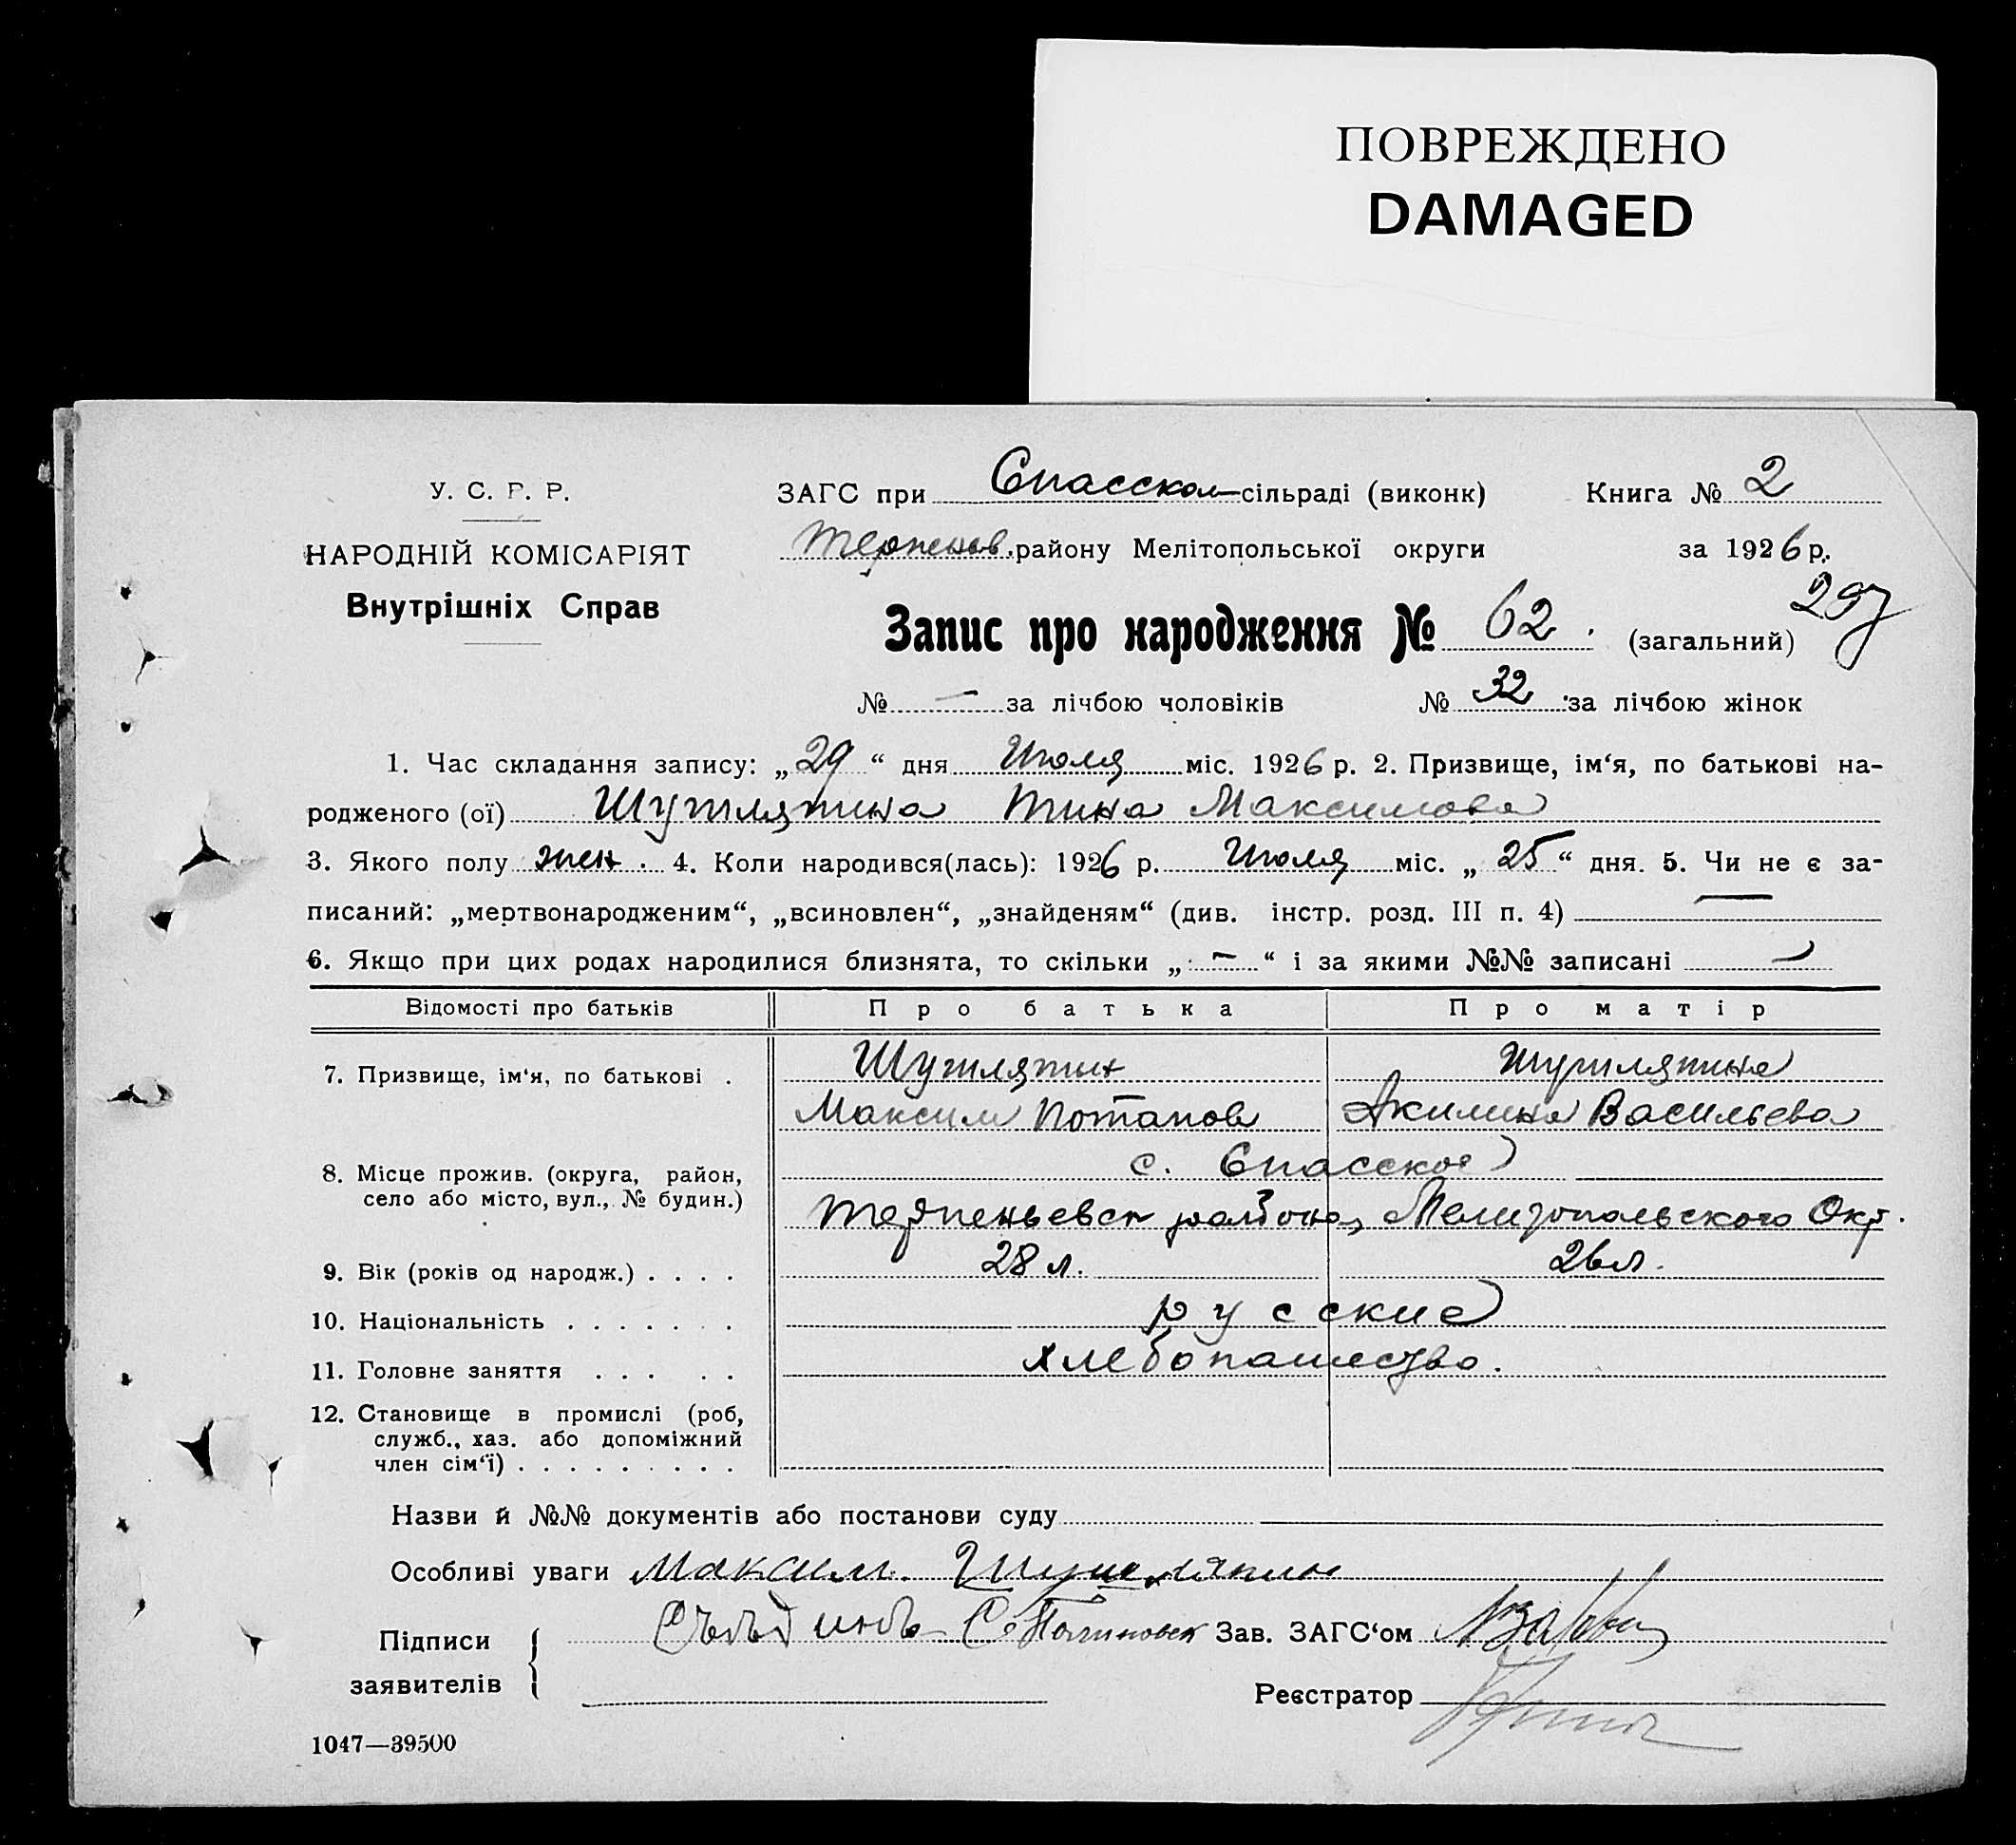 ПОВРЕЖДЕНО
DAMAGED
У. С. Р. Р.
НАРОДНІЙ КОМІСАРІЯТ
Внутрішніх Справ
ЗАГС при Спасском сільраді (виконк) Книга № 2
Терпенев. району Мелітопольської округи за 1926 р.
Запис про народження № 62. (загальний)
№ — за лічбою чоловіків № 32 за лічбою жінок
1. Час складання запису: „29“ дня Июля міс. 1926 р. 2. Призвище, ім‘я, по батькові на-
родженого (ої) Шутляпина Тина Максимова
3. Якого полу жен. 4. Коли народився(лась): 1926 р. Июля міс. „25“ дня. 5. Чи не є за-
писаний: „мертвонародженим“, „всиновлен“, „знайденям“ (див. інстр. розд. III п. 4) —
6. Якщо при цих родах народилися близнята, то скільки „—“ і за якими №№ записані —
Відомості про батьків Про батька Про матір
7. Призвище, ім‘я, по батькові . Шутляпин Шутляпина
Максим Потапов Акилина Васильева
8. Місце прожив. (округа, район, с. Спасское
село або місто, вул., № будин.) Терпеньевск района, Мелитопольского Окр.
9. Вік (років од народж.) . . . . 28 л. 26 л.
10. Національність . . . . . . . русские
11. Головне заняття . . . . . хлебопашество.
12. Становище в промислі (роб,
служб., хаз. або допоміжний
член сім‘ї) . . . . . . . . .
Назви й №№ документів або постанови суду
Особливі уваги Максим
Підписи Зав. ЗАГС‘ом
заявителів
Реєстратор
1047—39500